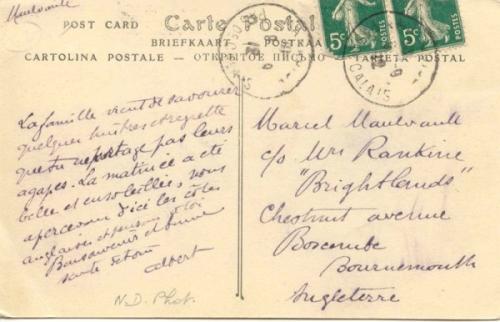 Maulvault
POST CARD Carte Postale
BRIEFKAART POSTKAA
CARTOLINA POSTALE – ОТКРЫТОЕ ПИСЬМО – TARJETA POSTAL
5c 5c
POSTES
CALAIS
La famille vient de savourer
quelques huitres et regrette
que tu partage pas leurs
agapes. La matinée a été
belle et ensoleillée, nous
apercevons d'ici les côtes
anglaises et pensons à toi
Bon souvenir et bonne
santé
Albert
Marcel Maulvault
c/o Mrs Rankine
"Brightlands"
Chestnut avenue
Boscombe
Bournemouth
Angleterre
N.D. Phot.